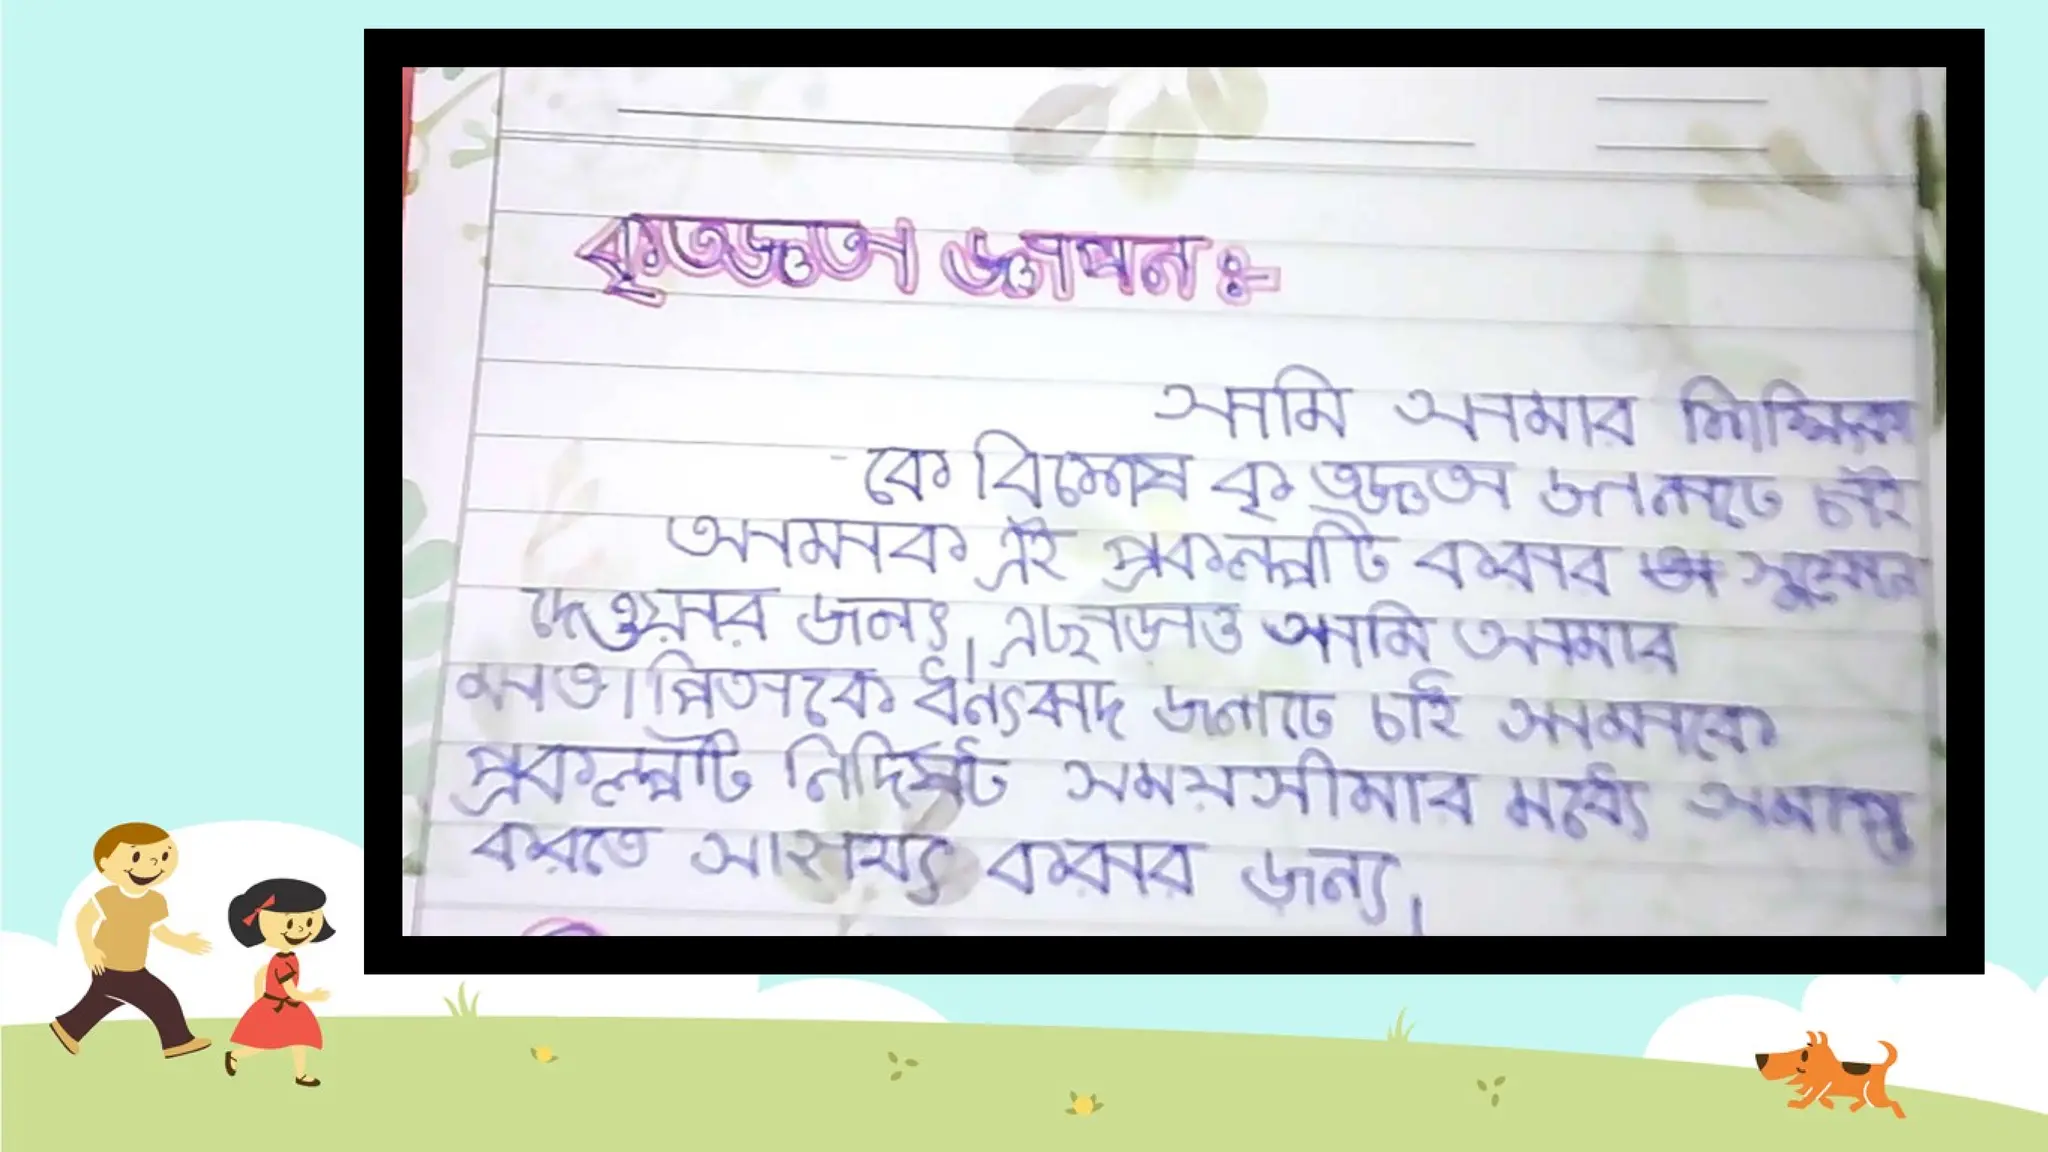 কৃতজ্ঞতা জ্ঞাপন ঃ-
আমি আমার শিক্ষিকা
কে বিশেষ কৃতজ্ঞতা জানাতে চাই
আমাকে এই প্রকল্পটি করার সুযোগ
দেওয়ার জন্য। এছাড়াও আমি আমার
মাতা পিতাকে ধন্যবাদ জানাতে চাই আমাকে
প্রকল্পটি নির্দিষ্ট সময়সীমার মধ্যে সমাপ্ত
করতে সাহায্য করার জন্য।